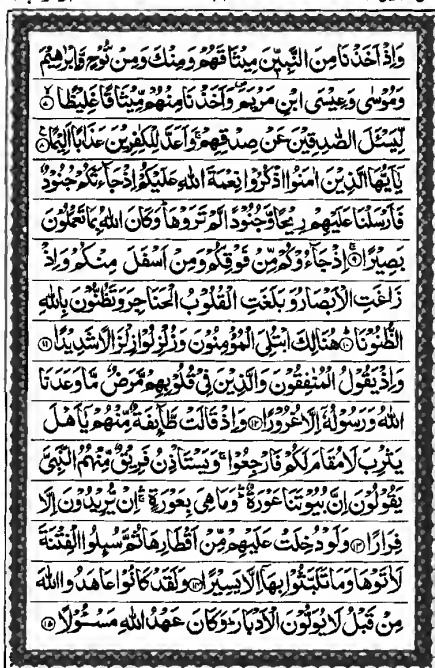 وَاِذْ اَخَذْنَا مِنَ النَّبِيّٖنَ مِيْثَاقَهُمْ وَمِنْكَ وَمِنْ نُّوْحٍ وَّاِبْرٰهِيْمَ
وَمُوْسٰى وَعِيْسَى ابْنِ مَرْيَمَ ۖ وَاَخَذْنَا مِنْهُمْ مِّيْثَاقًا غَلِيْظًا ۙ﴿۷﴾
لِّيَسْـَٔلَ الصّٰدِقِيْنَ عَنْ صِدْقِهِمْ ۚ وَاَعَدَّ لِلْكٰفِرِيْنَ عَذَابًا اَلِيْمًا ﴿۸﴾
يٰۤاَيُّهَا الَّذِيْنَ اٰمَنُوا اذْكُرُوْا نِعْمَةَ اللّٰهِ عَلَيْكُمْ اِذْ جَآءَتْكُمْ جُنُوْدٌ
فَاَرْسَلْنَا عَلَيْهِمْ رِيْحًا وَّجُنُوْدًا لَّمْ تَرَوْهَا ؕ وَكَانَ اللّٰهُ بِمَا تَعْمَلُوْنَ
بَصِيْرًا ۚ﴿۹﴾ اِذْ جَآءُوْكُمْ مِّنْ فَوْقِكُمْ وَمِنْ اَسْفَلَ مِنْكُمْ وَاِذْ
زَاغَتِ الْاَبْصَارُ وَبَلَغَتِ الْقُلُوْبُ الْحَنَاجِرَ وَتَظُنُّوْنَ بِاللّٰهِ
الظُّنُوْنَا ؕ﴿۱۰﴾ هُنَالِكَ ابْتُلِىَ الْمُؤْمِنُوْنَ وَزُلْزِلُوْا زِلْزَالًا شَدِيْدًا ﴿۱۱﴾
وَاِذْ يَقُوْلُ الْمُنٰفِقُوْنَ وَالَّذِيْنَ فِىْ قُلُوْبِهِمْ مَّرَضٌ مَّا وَعَدَنَا
اللّٰهُ وَرَسُوْلُهٗۤ اِلَّا غُرُوْرًا ﴿۱۲﴾ وَاِذْ قَالَتْ طَّآئِفَةٌ مِّنْهُمْ يٰۤاَهْلَ
يَثْرِبَ لَا مُقَامَ لَكُمْ فَارْجِعُوْا ۚ وَيَسْتَاْذِنُ فَرِيْقٌ مِّنْهُمُ النَّبِىَّ
يَقُوْلُوْنَ اِنَّ بُيُوْتَنَا عَوْرَةٌ ۛ وَمَا هِىَ بِعَوْرَةٍ ۚ اِنْ يُّرِيْدُوْنَ اِلَّا
فِرَارًا ﴿۱۳﴾ وَلَوْ دُخِلَتْ عَلَيْهِمْ مِّنْ اَقْطَارِهَا ثُمَّ سُئِلُوا الْفِتْنَةَ
لَاٰتَوْهَا وَمَا تَلَبَّثُوْا بِهَاۤ اِلَّا يَسِيْرًا ﴿۱۴﴾ وَلَقَدْ كَانُوْا عَاهَدُوا اللّٰهَ
مِنْ قَبْلُ لَا يُوَلُّوْنَ الْاَدْبَارَ ؕ وَكَانَ عَهْدُ اللّٰهِ مَسْـُٔوْلًا ﴿۱۵﴾